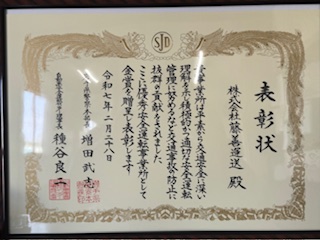 SJD
表彰状
株式会社藤善運送 殿
貴事業所は平素から交通安全に深い
理解を示し積極的かつ適切な安全運転
管理に努めるなど交通事故防止に
抜群の貢献をされました
ここに優秀安全運転事業所として
金賞を贈呈し表彰します
令和七年二月二十八日
警察本部長 増田武志
自動車安全運転センター理事長 種谷良二